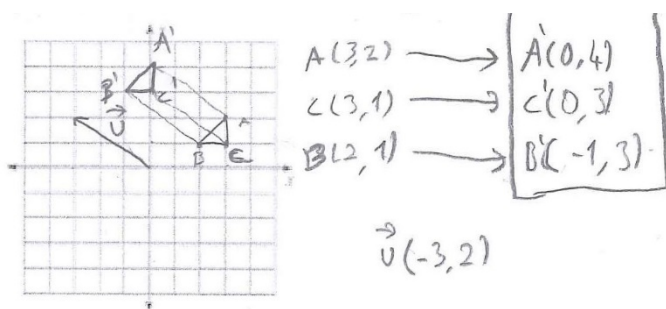 A'
B' C'
U
A
B C
A(3,2) → A'(0,4)
C(3,1) → C'(0,3)
B(2,1) → B'(-1,3)
U(-3,2)